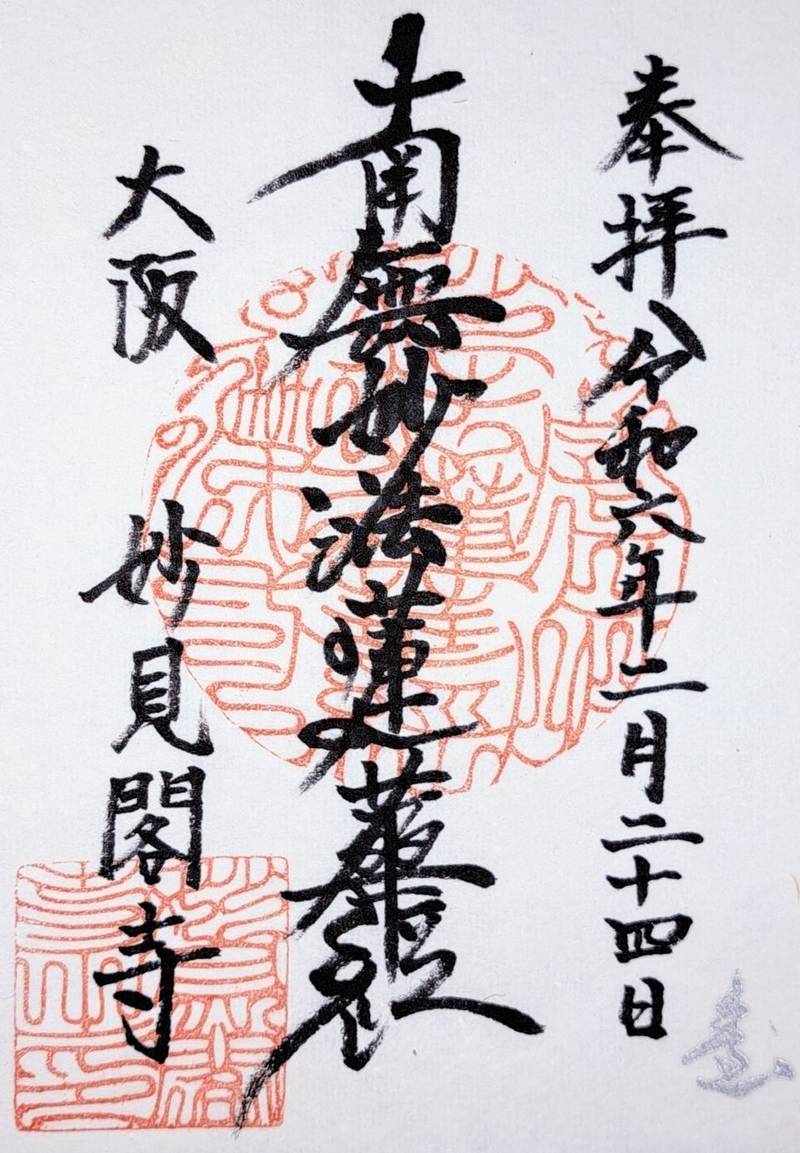 奉拝 令和六年二月二十四日
南無妙法蓮華経
大阪 妙見閣寺